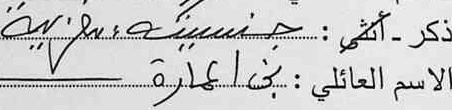 ذكر - أنثى : جنسيته : مغربية
الاسم العائلي : بني اعمارة